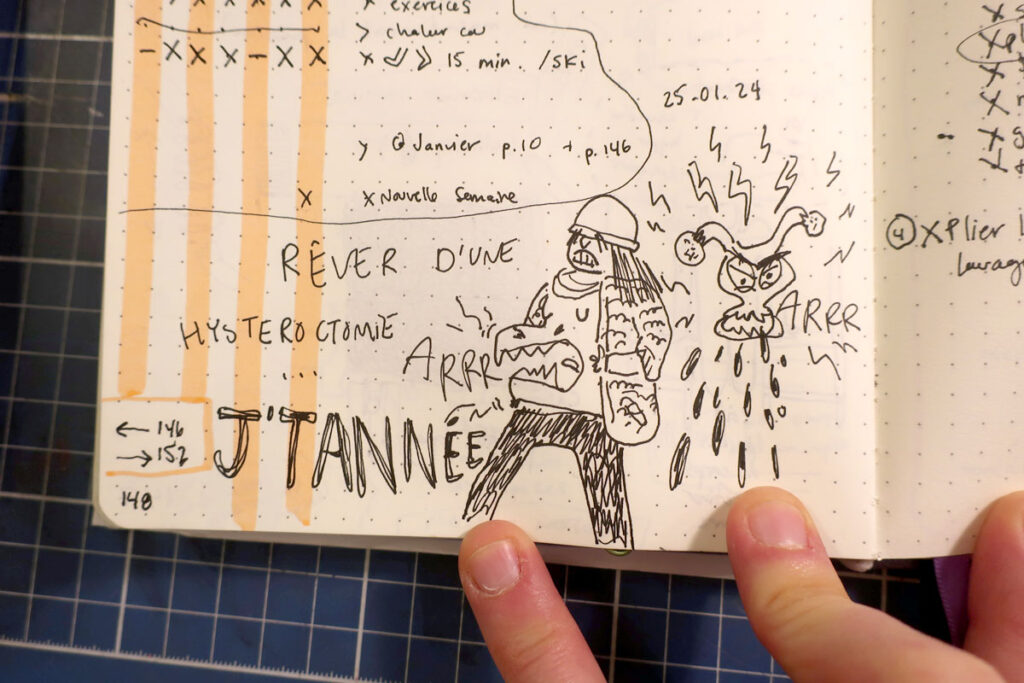 x exercices
> chaleur
x 15 min. /ski
25.01.24
@ Janvier p.10 + p.146
x Nouvelle semaine
RÊVER D'UNE
HYSTEROCTOMIE
...
ARRR
ARRR
J'TANNÉE
← 146
→ 152
148
④ X Plier